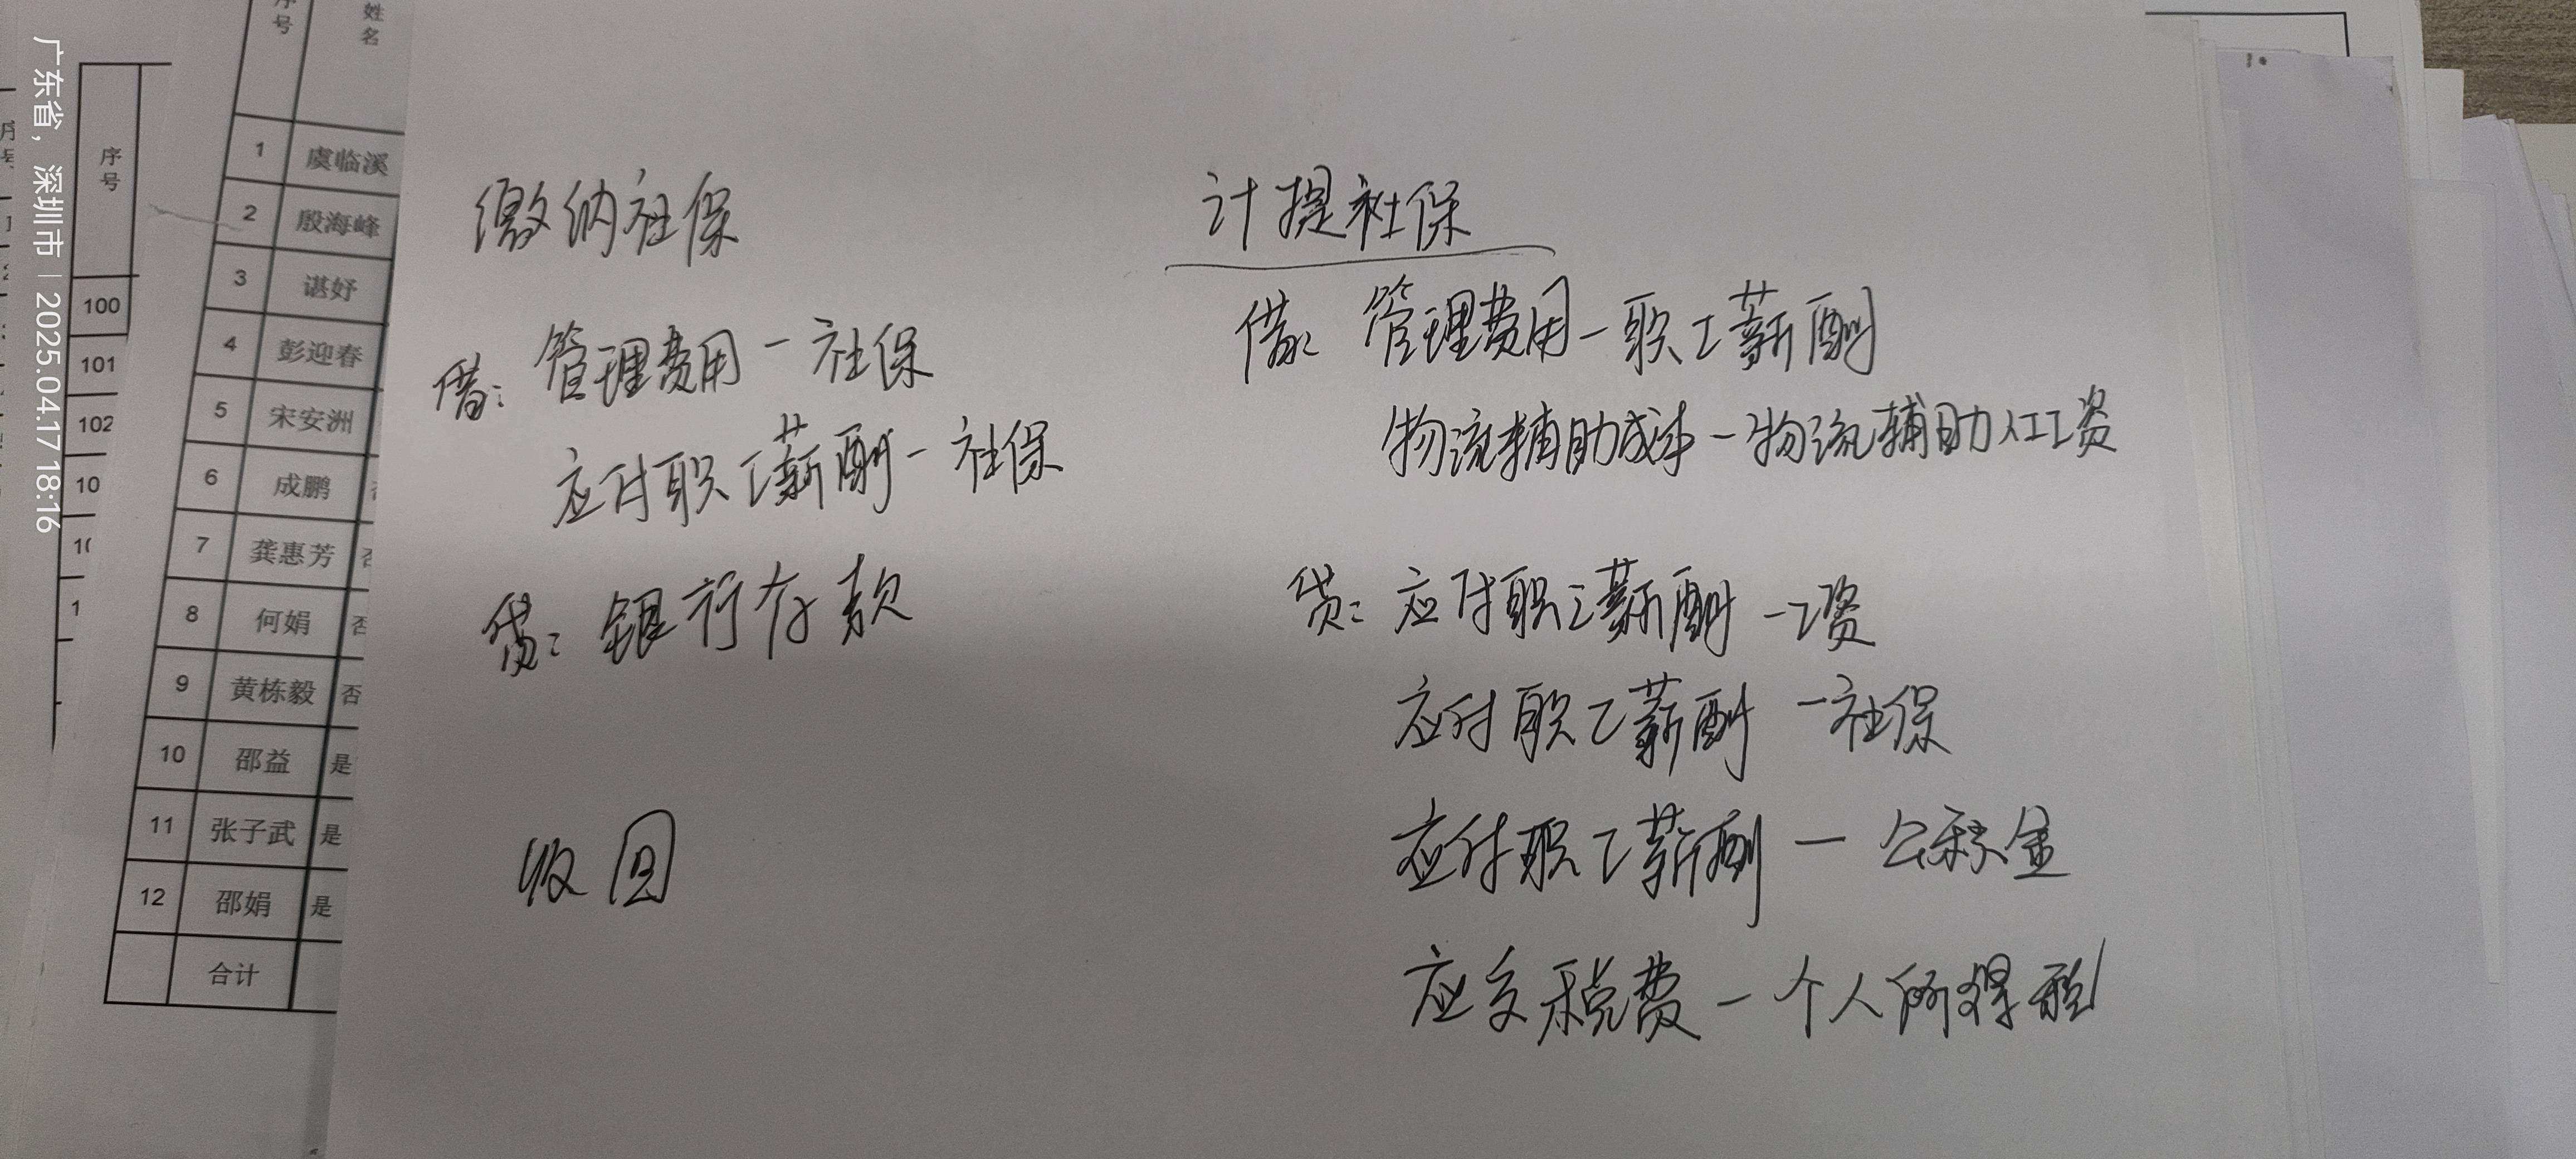 广东省，深圳市 | 2025.04.17 18:16
序号
100
101
102
10
10
1
序号 姓名
1 虞临溪
2 殷海峰
3 谌妤
4 彭迎春
5 宋安洲
6 成鹏
7 龚惠芳
8 何娟 否
9 黄栋毅 否
10 邵益 是
11 张子武 是
12 邵娟 是
合计
缴纳社保
借：管理费用－社保
应付职工薪酬－社保
贷：银行存款
收回
计提社保
借：管理费用－职工薪酬
物流辅助成本－物流辅助人工工资
贷：应付职工薪酬－工资
应付职工薪酬－社保
应付职工薪酬－公积金
应交税费－个人所得税